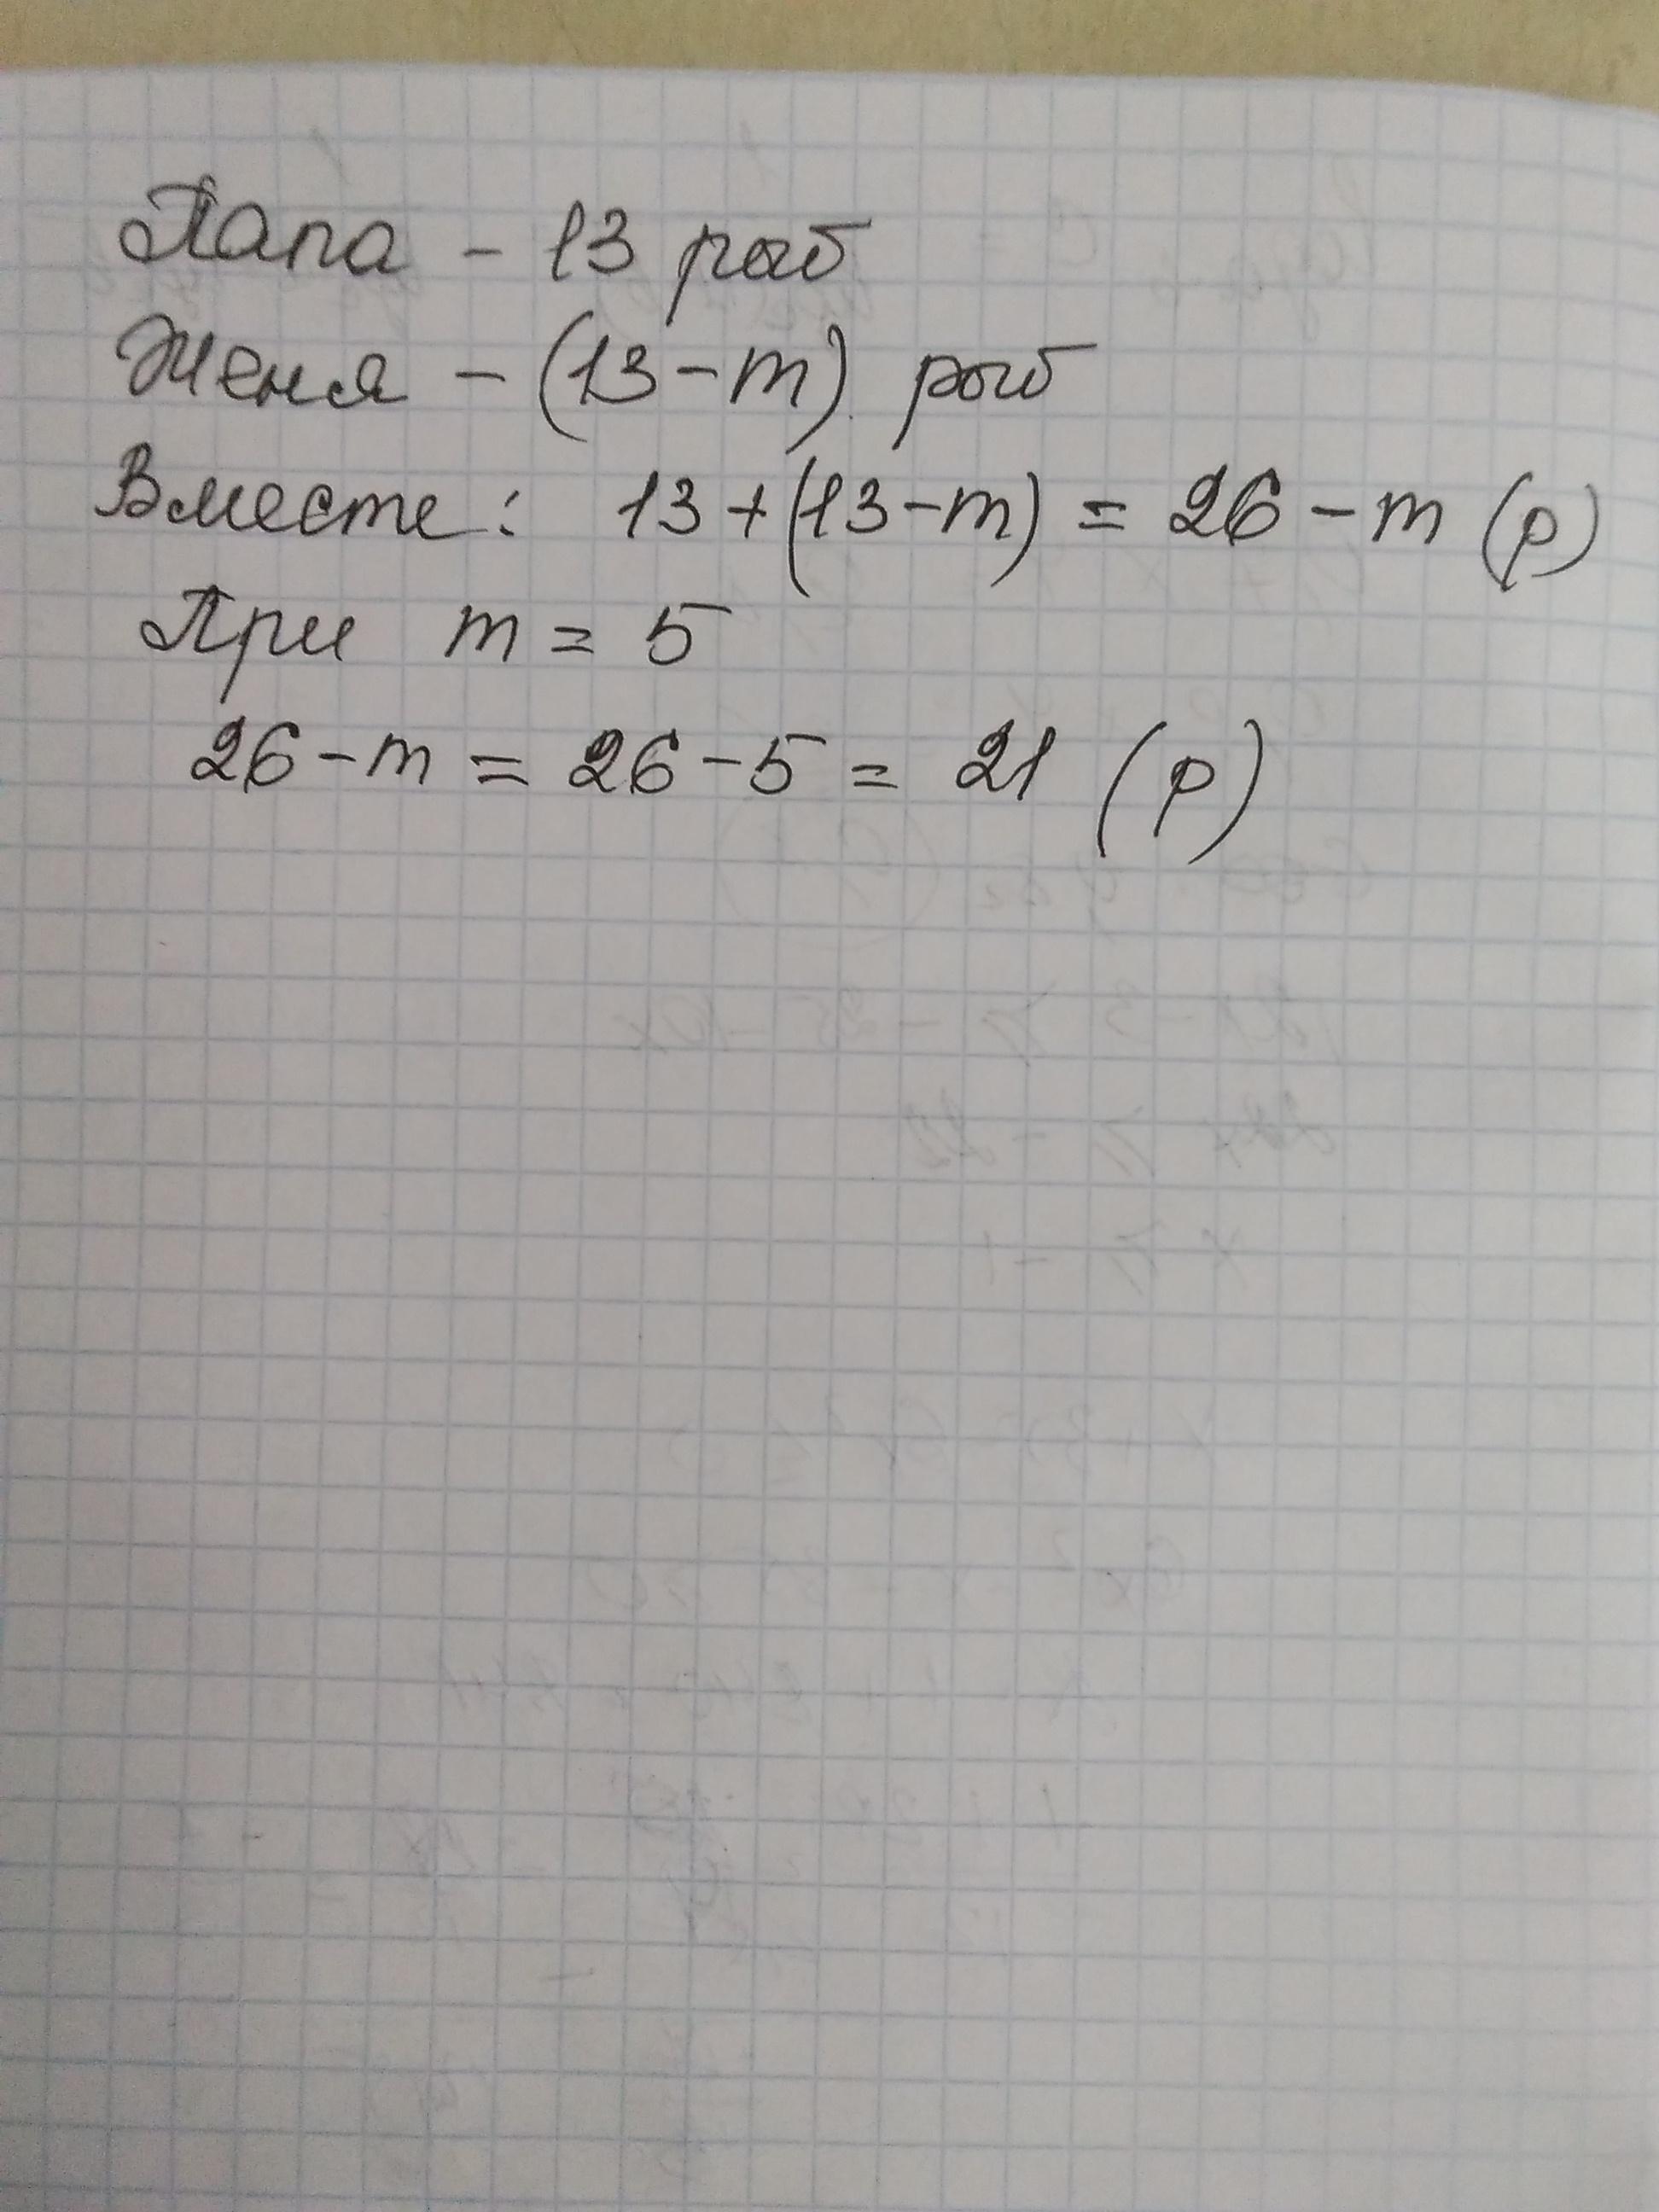 Папа – 13 рыб
Женя – (13 – m) рыб
Вместе: 13 + (13 – m) = 26 – m (р)
При m = 5
26 – m = 26 – 5 = 21 (р)